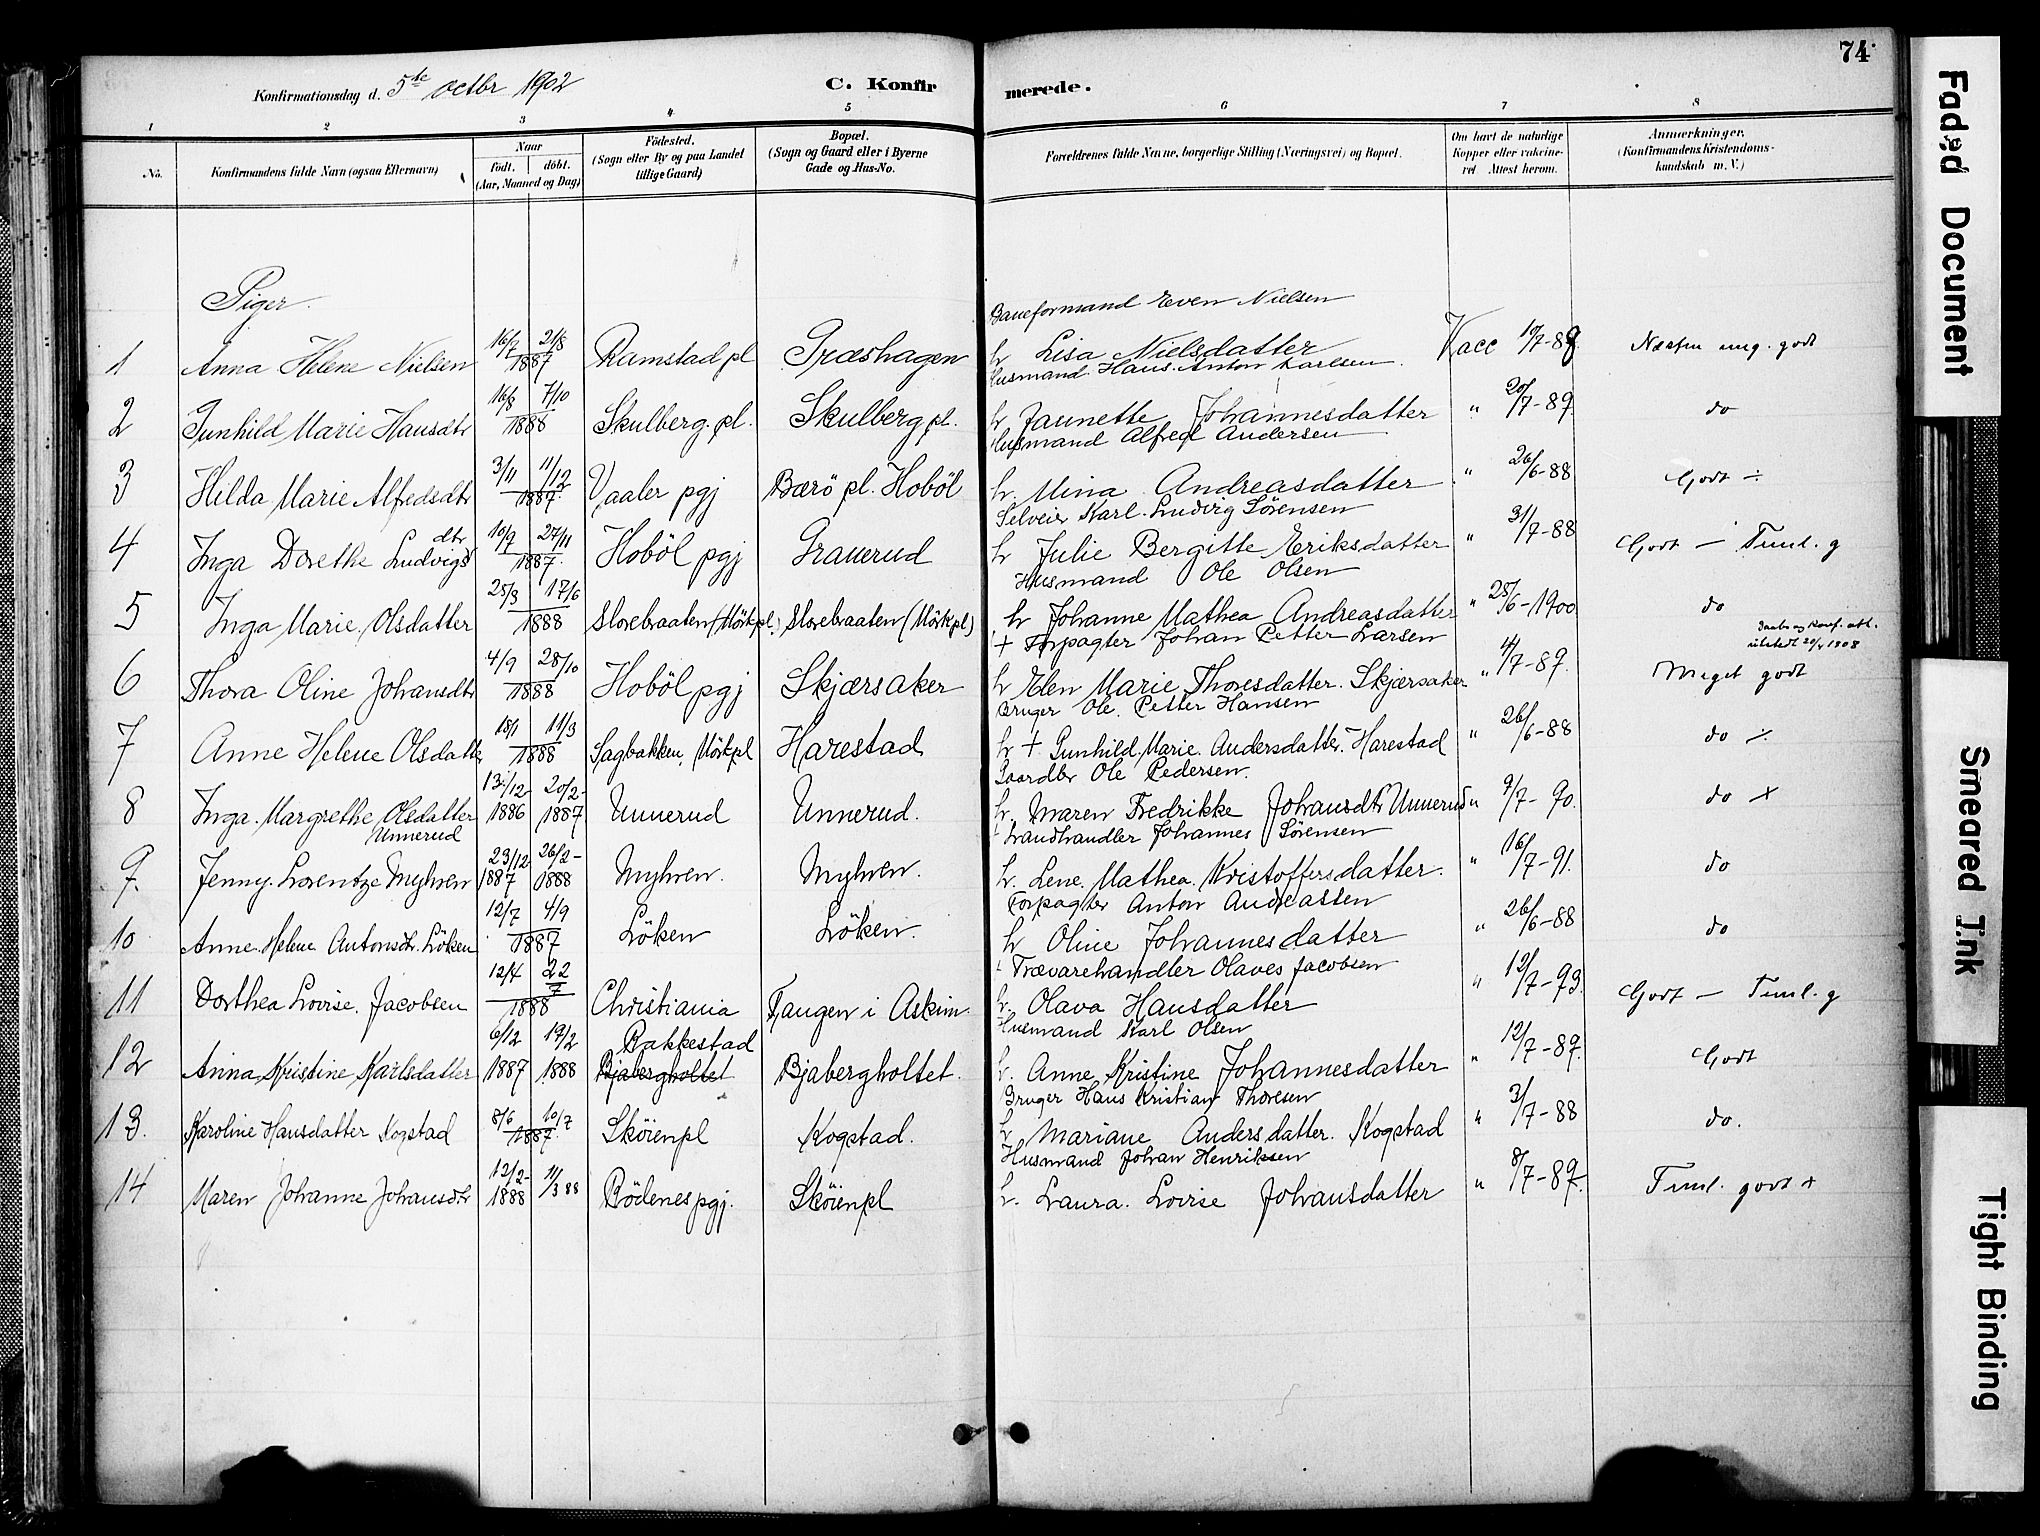 74
Konfirmationsdag d. 5te octbr 1902
C. Konfirmerede.
1 2 3 4 5 6 7 8
No.
Konfirmandens fulde Navn (ogsaa Efternavn)
Naar
født. døbt.
(Aar, Maaned og Dag)
Fødested.
(Sogn eller By og paa Landet
tillige Gaard)
Bopæl.
(Sogn og Gaard eller i Byerne
Gade og Hus-No.
Forældrenes fulde Navne, borgerlige Stilling (Næringsvei) og Bopæl.
Om havt de naturlige
Kopper eller vakcine-
ret Attest herom.
Anmærkninger.
(Konfirmandens Kristendoms-
kundskab m. V.)
Piger.
Baneformand Even Nielsen
1 Anna Helene Nielsen 16/7 2/8 1887 Ramstad pl Græshagen h Lisa Nielsdatter Vacc 10/7-89 Næsten meg. godt
Husmand Hans Anton Karlsen
2 Gunhild Marie Hansdtr 16/8 7/10 1888 Skulberg. pl. Skulberg pl. h Jaunette Johannesdatter " 20/7-89 do
Husmand Alfred Andersen
3 Hilda Marie Alfredsdtr 3/11 11/12 1887 Vaaler pgj Bærö pl. Hoböl h. Mina Andreasdatter " 26/6-88 Godt ÷
Selveier Karl Ludvig Sörensen
4 Inga Dorethe Ludvigsdtr 10/9 27/11 1887 Hoböl pgj Grauerud h Julie Bergitte Eriksdatter " 31/7-88 Godt — Teml. g
Husmand Ole Olsen
5 Inga Marie Olsdatter 25/3 17/6 1888 Storebraaten (Mörk pl.) Storebraaten (Mörk pl) h Johanne Mathea Andreasdatter " 25/6-1900 do
+ Forpagter Johan Petter Larsen
6 Thora Oline Johansdtr 4/9 28/10 1888 Hoböl pgj Skjærsaker h Elen Marie Thoresdatter. Skjærsaker " 4/7-89. Meget godt
Bruger Ole Petter Hansen
7 Anne Helene Olsdatter 18/1 11/3 1888 Sagbakken, Mörk pl Harestad h + Gunhild Marie Andersdatter. Harestad " 26/6-88 do
Gaardbr Ole Pedersen.
8 Inga Margrethe Olsdatter Unnerud 13/12 1886 20/2 1887 Unnerud Unnerud. h. Maren Fredrikke Johansdtr Unnerud " 9/7-90. do +
Landhandler Johannes Sörensen
9. Jenny Lorentze Myhren 23/12 1887 26/2 1888 Myhren. Myhren. h. Lene Mathea Kristoffersdatter. " 16/7-91. do
Forpagter Anton Andreassen
10 Anne Helene Antonsdtr. Löken 12/7 4/9 1887 Löken Löken. h Oline Johannesdatter " 26/6-88 do
Trævarehandler Olaves Jacobsen
11 Dorthea Lovise Jacobsen 12/4 22/7 1888 Christiania Tangen i Askim h. Olava Hansdatter " 12/7-93. Godt — Teml. g
Husmand Karl Olsen
12 Anna Kristine Karlsdatter 6/12 1887 19/2 1888 Rakkestad Bjabergholtet Bjabergholtet. h. Anne Kristine Johannesdatter " 12/7-89. Godt
Bruger Hans Kristian Thoresen
13. Karoline Hansdatter Kogstad 8/6 10/7 1887. Sköien pl Kogstad. h. Mariane Andersdatter. Kogstad " 3/7-88 do.
Husmand Johan Henriksen
14 Maren Johanne Johansdtr 12/2 1888 11/3 88 Rödenes pgj. Sköien pl h. Laura Lovise Johansdatter " 8/7-89. Teml. godt +
Faded Document
Smeared Ink
Tight Binding